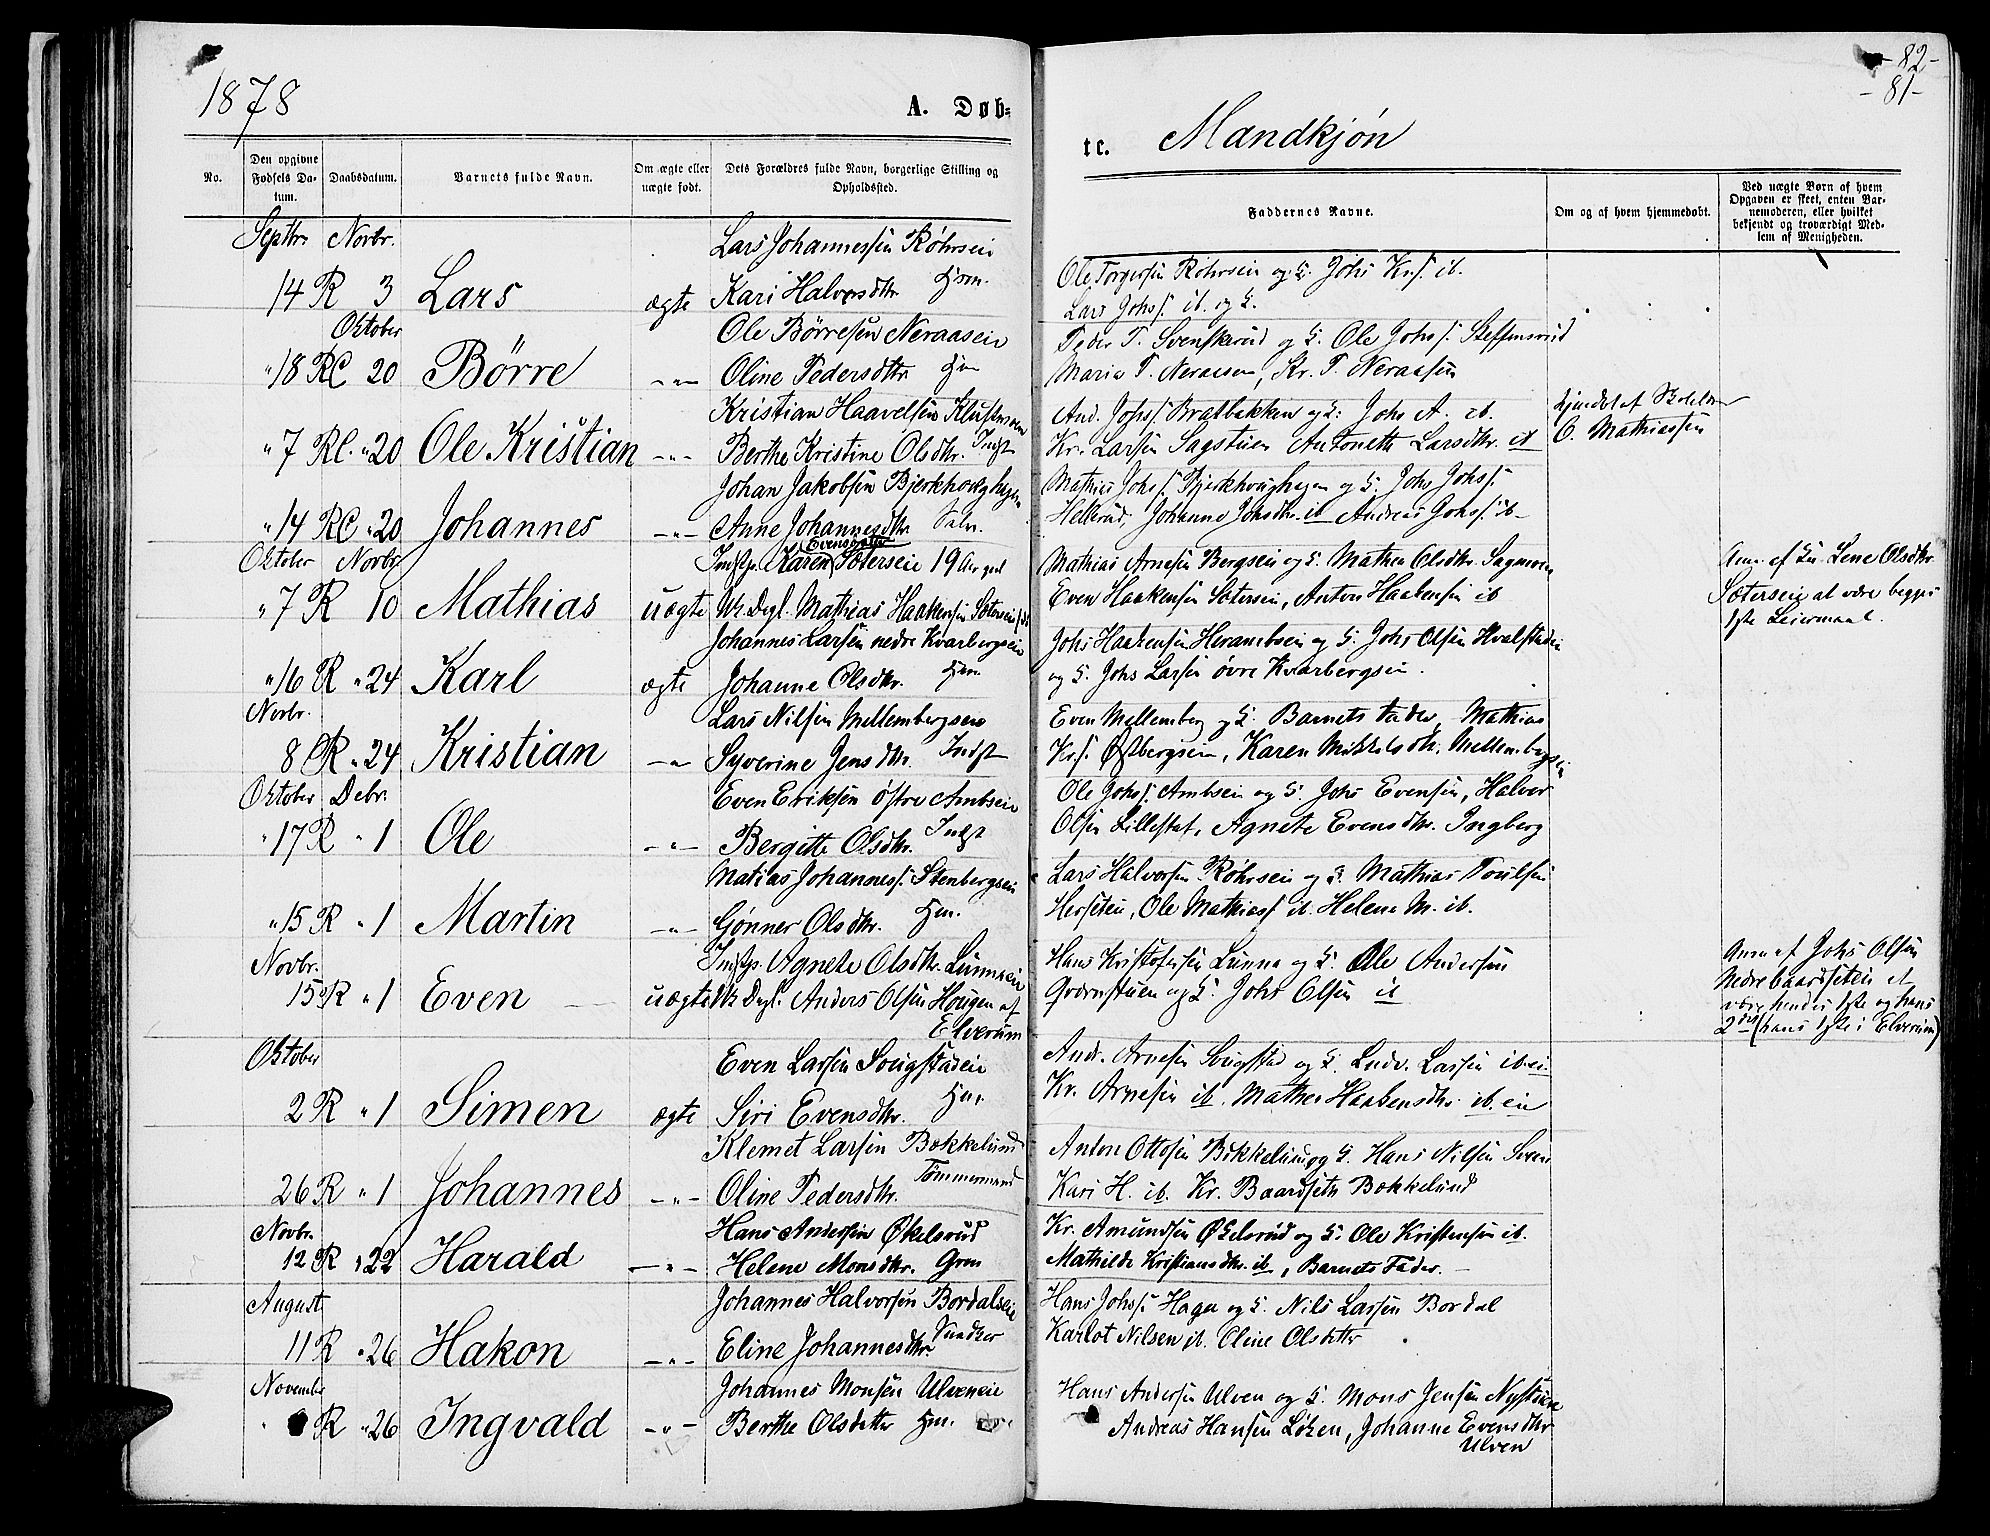 1878
A. Døb-
No.
Den opgivne Fødsels Datum.
Daabsdatum.
Barnets fulde Navn.
Om ægte eller uægte født.
Dets Forældres fulde Navn, borgerlige Stilling og Opholdssted.
Septbr. Novbr. Lars Johannessen Röhrseie
14 R 3 Lars ægte Kari Halvorsdtr. Hsm.
Oktober Ole Börresen Neraaseie
" 18 RC 20 Börre -"- Oline Pedersdtr. Hsm
Kristian Haavelsen
" 7 RC. " 20 Ole Kristian -"- Berthe Kristine Olsdtr. Indst
Johan Jakobsen Bjerkhoeghagen
" 14 RC " 20 Johannes -"- Anne Johannesdtr. Selv.
Oktober Novbr. Evensdatter
Indstp. Karen Sæterseie 19 Aar gml
" 7 R 10 Mathias uægte Ur. Dgl. Mathias Haakensen Sæterseie
Johannes Larsen nedre Kvarbergseie
" 16 R " 24 Karl ægte Johanne Olsdtr. Hsm
Novbr. Lars Nilsen Mellembergseie
8 R " 24 Kristian -"- Syverine Jensdtr. Indst
Oktober Debr. Even Eriksen östre Ambseie
" 17 R " 1 Ole -"- Bergitte Olsdtr. Indst
Matias Johanness. Stenbergseie
" 15 R " 1 Martin -"- Gönner Olsdtr. Hsm.
Novbr. Indstp. Agnete Olsdtr. Lunnaeie
15 R " 1 Even uægte Uk Dgl. Anders Olsen Haugen af
Elverum
Oktober Even Larsen Sveigstadeie
2 R " 1 Simen ægte Siri Evensdtr. Hsm
Klemet Larsen Bokkelund
26 R " 1 Johannes -"- Oline Pedersdtr. Tømmermand
Novbr. Hans Andersen Økelsrud
12 R " 22 Harald -"- Helene Monsdtr. Grm
August Johannes Halvorsen Bordalseie
11 R " 26 Hakon -"- Eline Johannesdtr. Snedker
November Johannes Monsen Ulveneie
R " 26 Ingvald -"- Berthe Olsdatter Hsm.
-82-
-81-
te. Mandkjøn
Faddernes Navne.
Om og af hvem hjemmedøbt.
Ved uægte Børn af hvem Opgaven er skeet, enten Barnemoderen, eller hvilket bekjendt og troværdigt Medlem af Menigheden.
Ole Torgersen Röhrseie og H. Johs Krs. ib.
Lars Johss. ib. og H.
Peder P. Svenskerud og H. Ole Johs. Steffensrud
Maria P. Neraasen, Kr. P. Neraasen
And. Johss. Bratbakken og H. Johs A. ib. Hjemdøbt af Skolelærer
Kr. Larsen Sagstuen Antonette Larsdtr. ib O. Mathiassen
Mathias Johss. Bjerkhoughagen og H. Johs Johss.
Hellerud, Johanne Johsdtr. ib Andreas Johss. ib
Mathias Arnesen Bergseie og H. Mathea Olsdtr. Sagmoen
Even Haakensen Sæterseie, Anton Haakensen ib
Anm. af Lene Olsdtr.
Sæterseie at være begges
1ste Leiermaal.
Johs Haakensen Herambseie og H. Johs Olsen Hvalstadeie
og H. Johs Larsen övre Kvarbergseie.
Even Mellemberg og H. Barnets Fader, Mathias
Krs. Østbergseie, Karen Mikkelsdtr. Mellembergseie
Ole Johs. Ambseie og H. Johs Evensen, Halvor
Olsen Lillestat, Agnete Evensdtr. Ingberg
Lars Halvorsen Röhrseie og H. Mathias Poulsen
Herseteie, Ole Mathiass ib. Helene M. ib.
Hans Kristofersen Lunna og H. Ole Andersen
Qværnstuen og H. Johs Olsen ib
Anm. af Johs Olsen
Nedre baardseteie at
være hendes 1ste og hans
2det (hans 1ste i Elverum)
Andr. Arnesen Sveigstad og H. Ludv. Larsen ib. eie
Kr. Arnesen ib. Mathea Haakensdtr. ib. eie
Anton Ottosen Bokkelund og H. Hans Nilsen Sveen
Kari H. ib. Kr. Baardseth Bokkelund
Kr. Amundsen Økelsrud og H. Ole Kristensen ib.
Mathilde Kristiansdtr. ib, Barnets Fader.
Hans Johss. Haga og H. Nils Larsen Bordal
Karlot Nilsen ib. Oline Olsdatter
Hans Andersen Ulven og H. Mons Jensen Nystuen
Andreas Hansen Löken, Johanne Evensdtr
Ulven